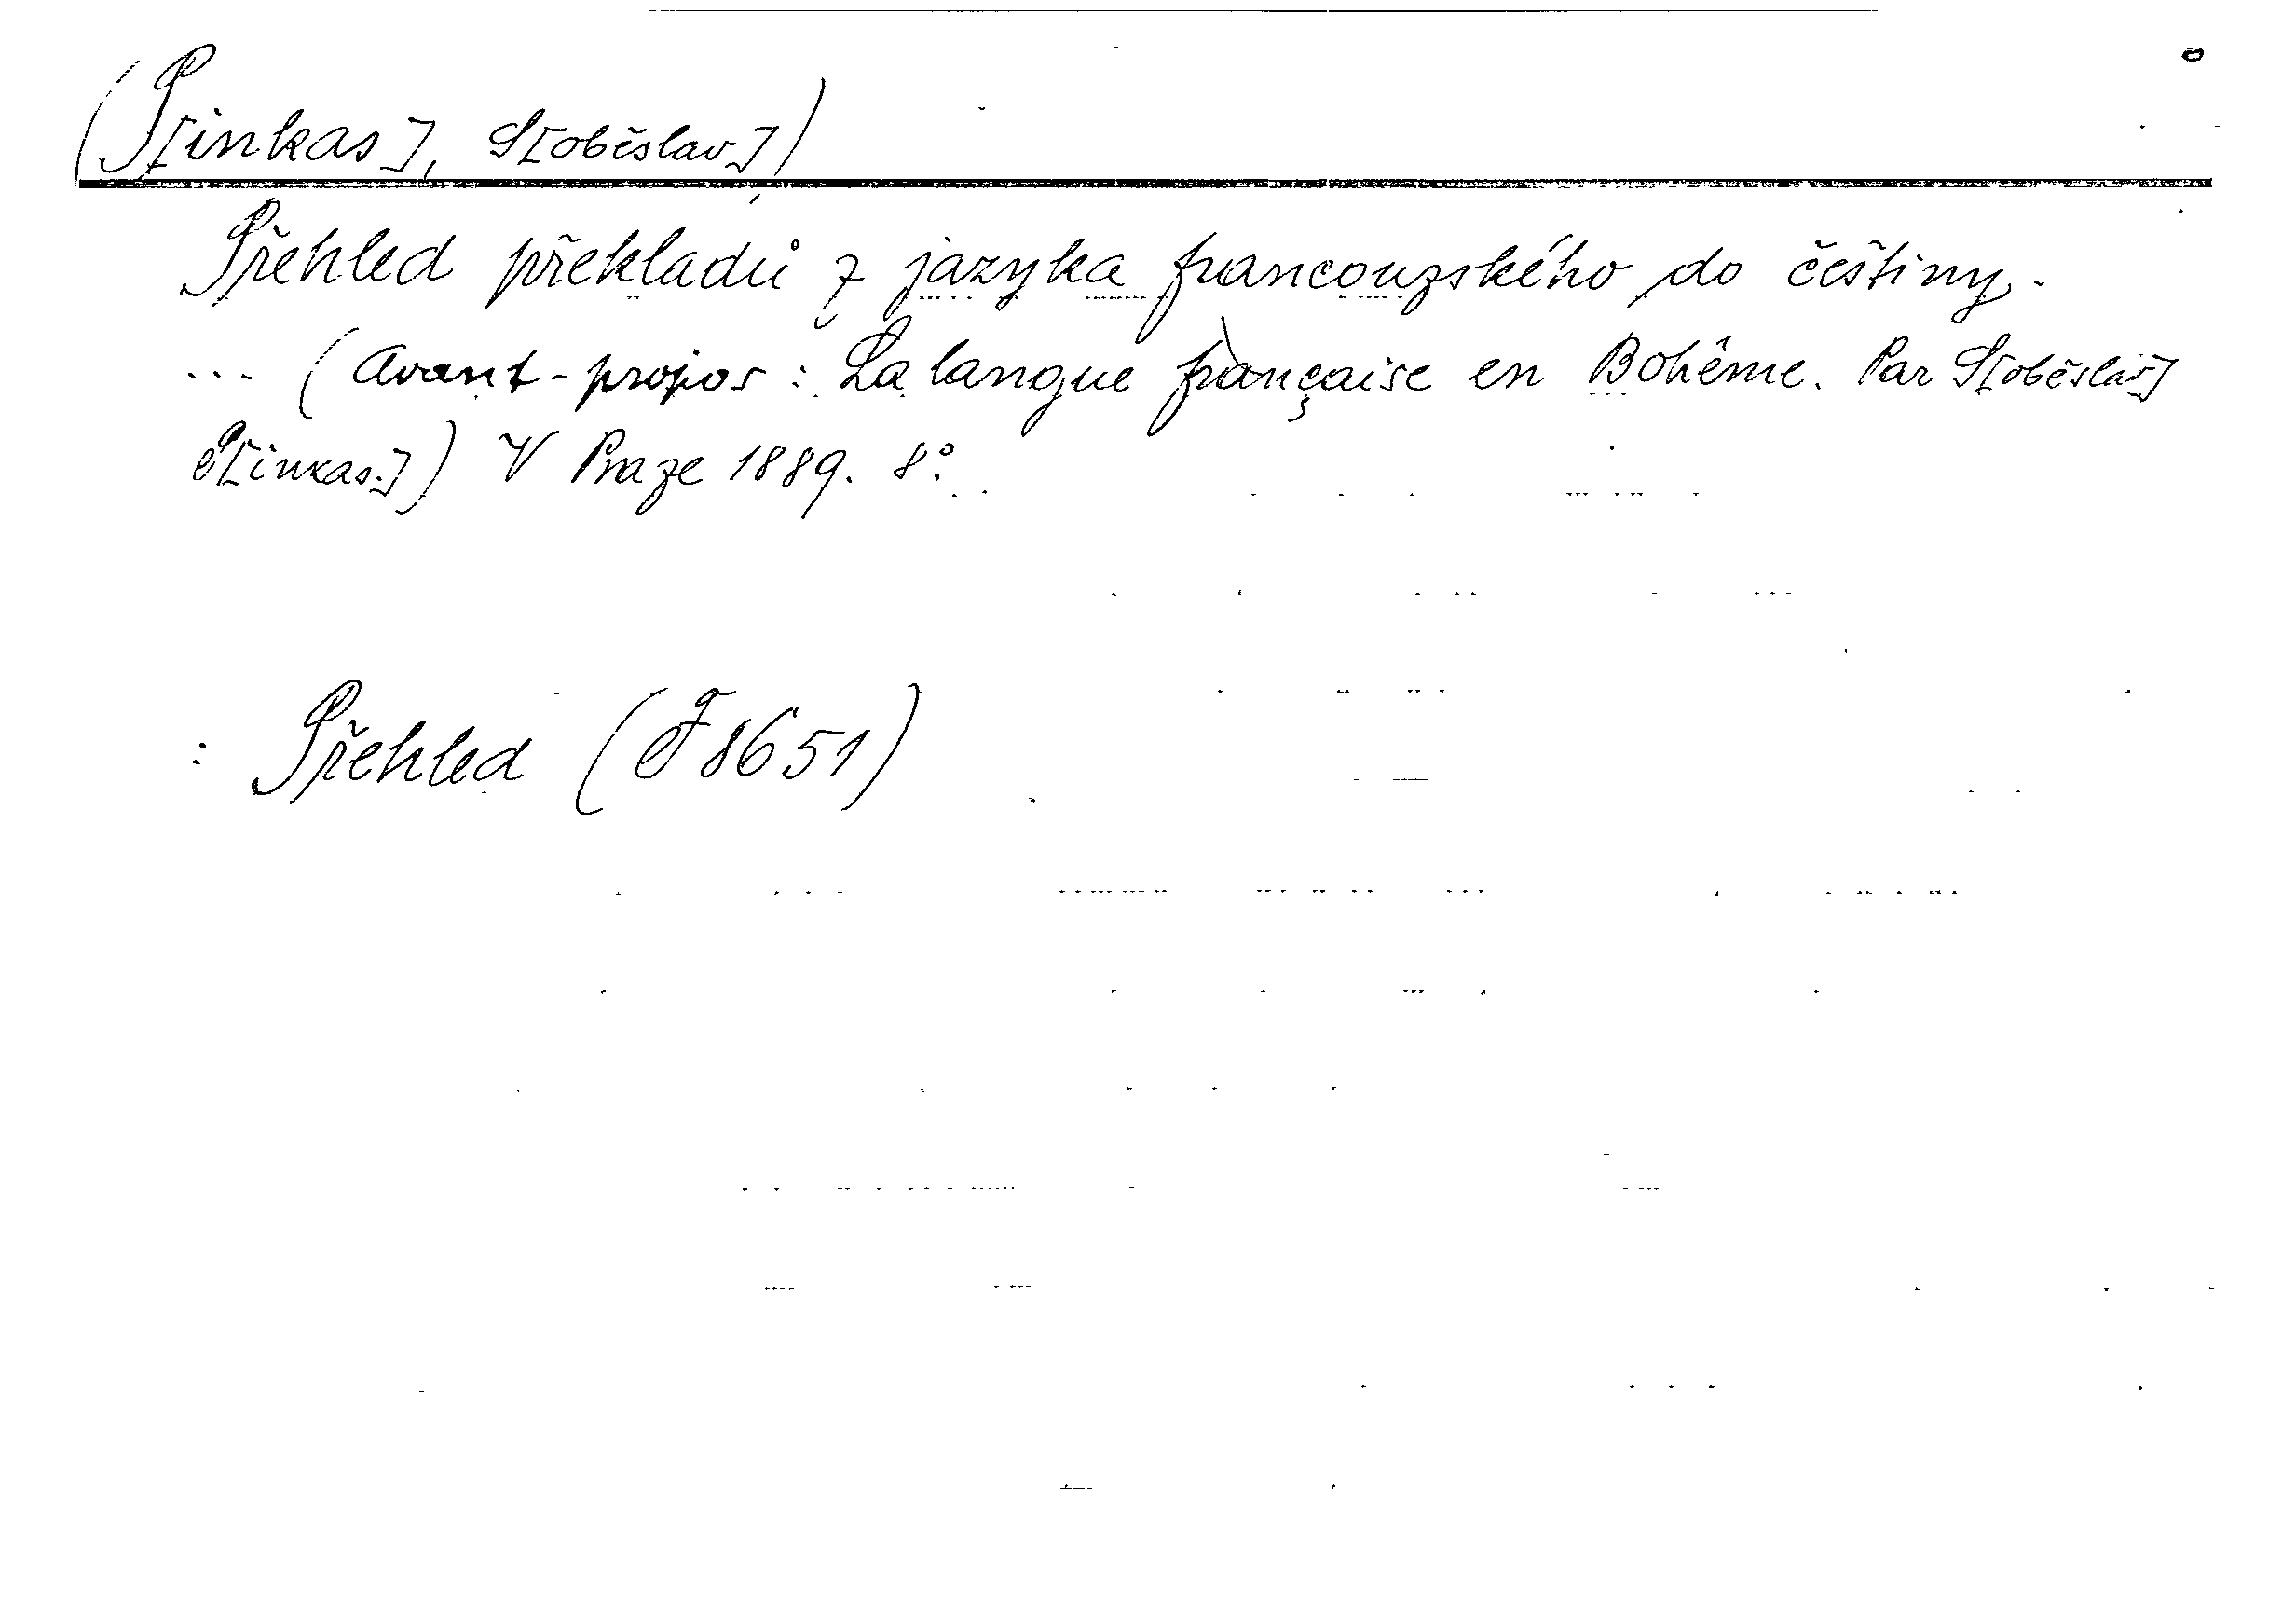 (P[inkas], S[oběslav])
Přehled překladů z jazyka francouzského do češtiny.
... (Avant-propos: La langue française en Bohême. Par S[oběslav]
P[inkas.]) V Praze 1889. 8°.
: Přehled (F 8651)